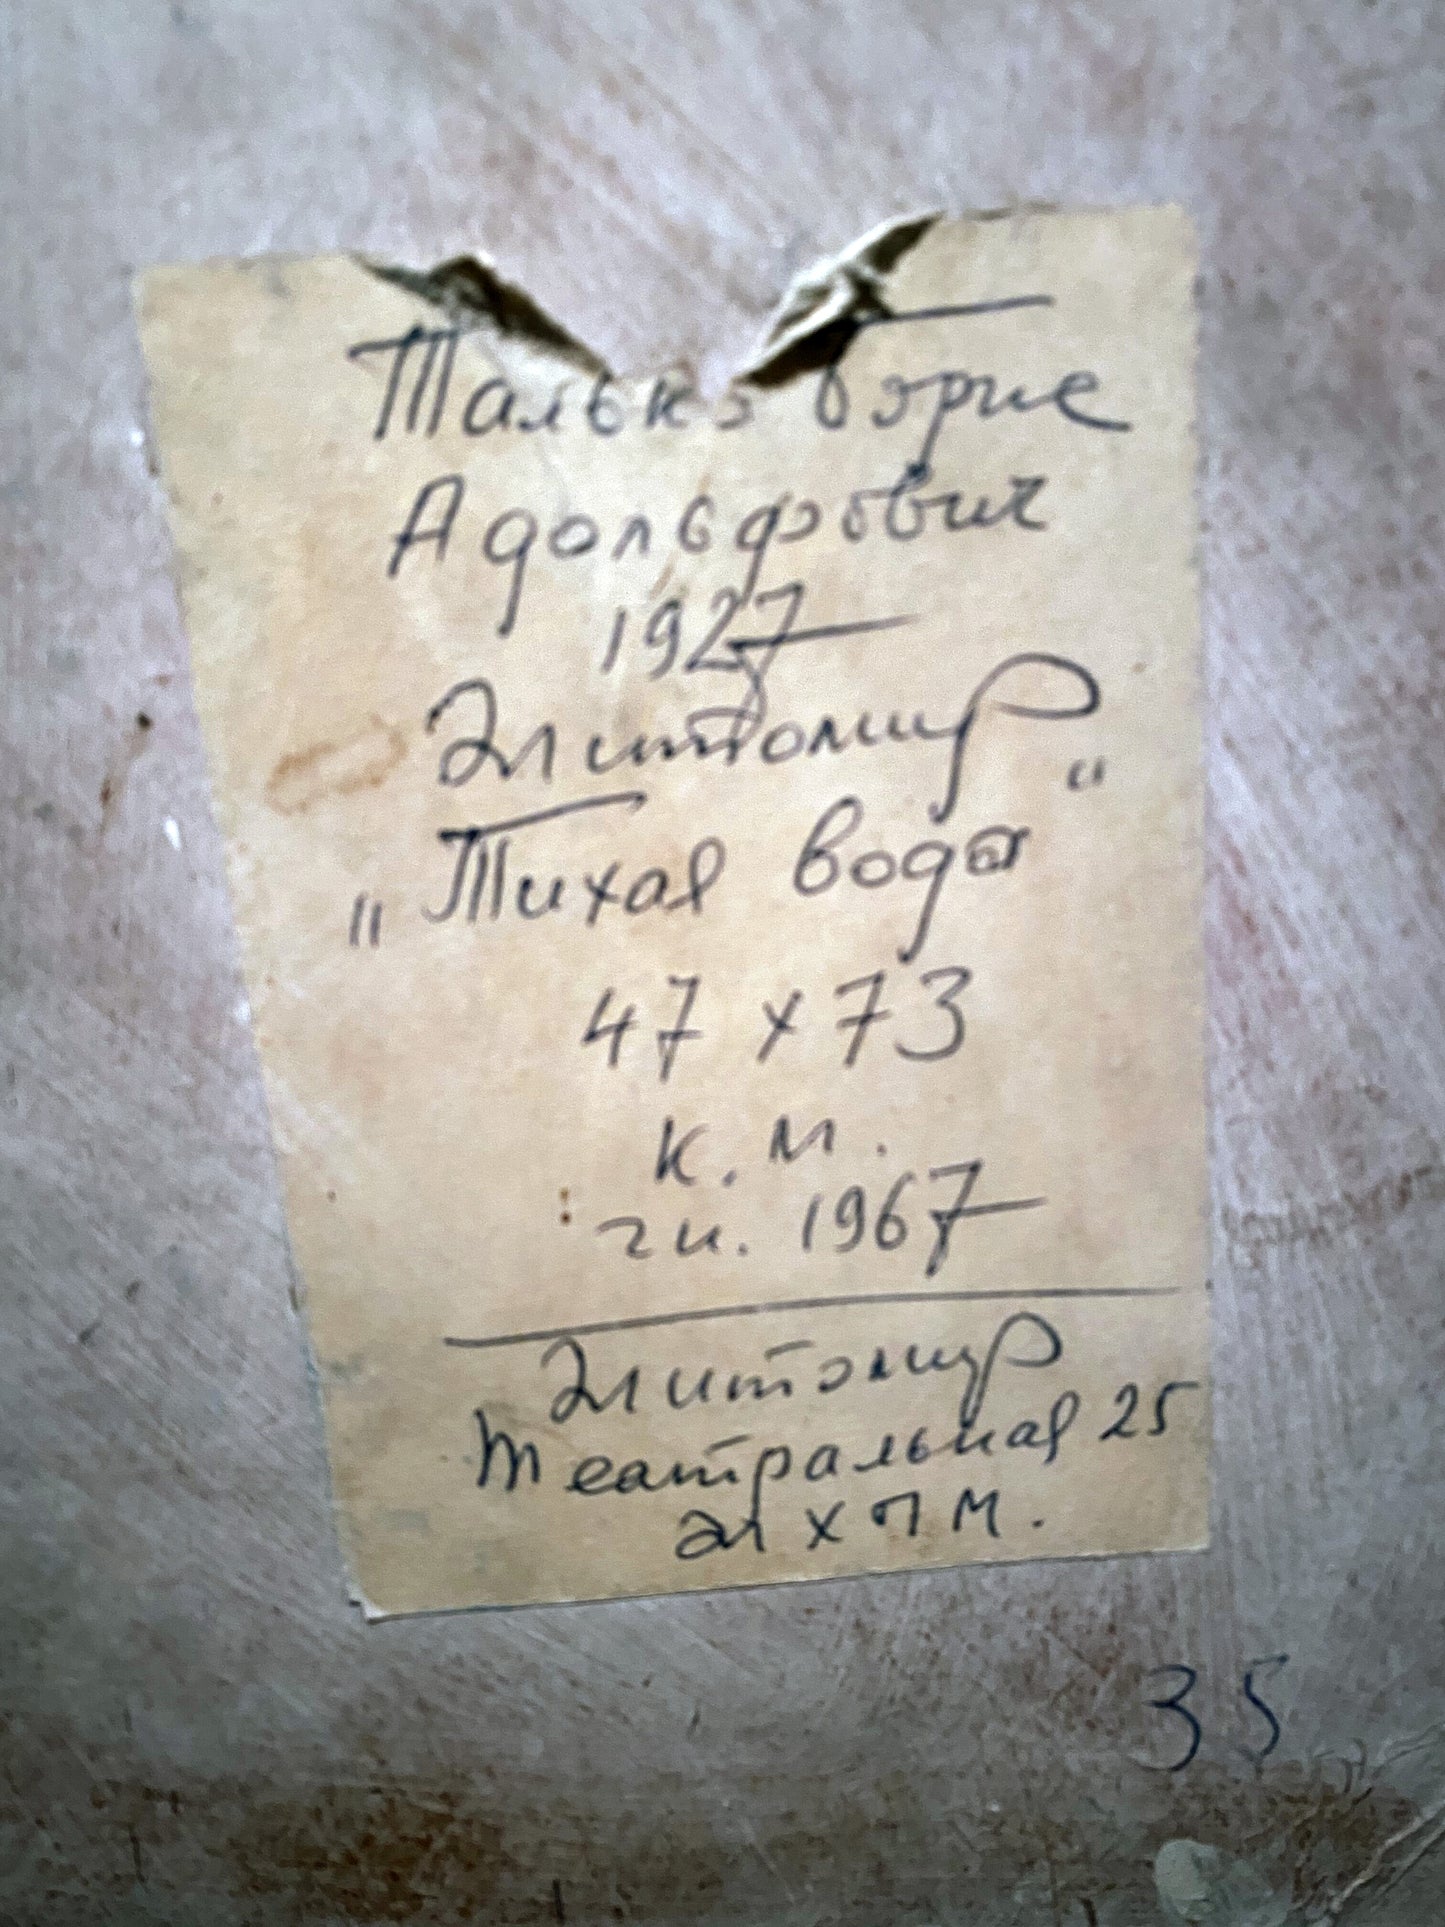 Талько Борис
Адольфович
1927
Житомир
„Тихая вода"
47 х 73
к. м.
ги. 1967
Житомир
Театральная 25
ЖХПМ.
35